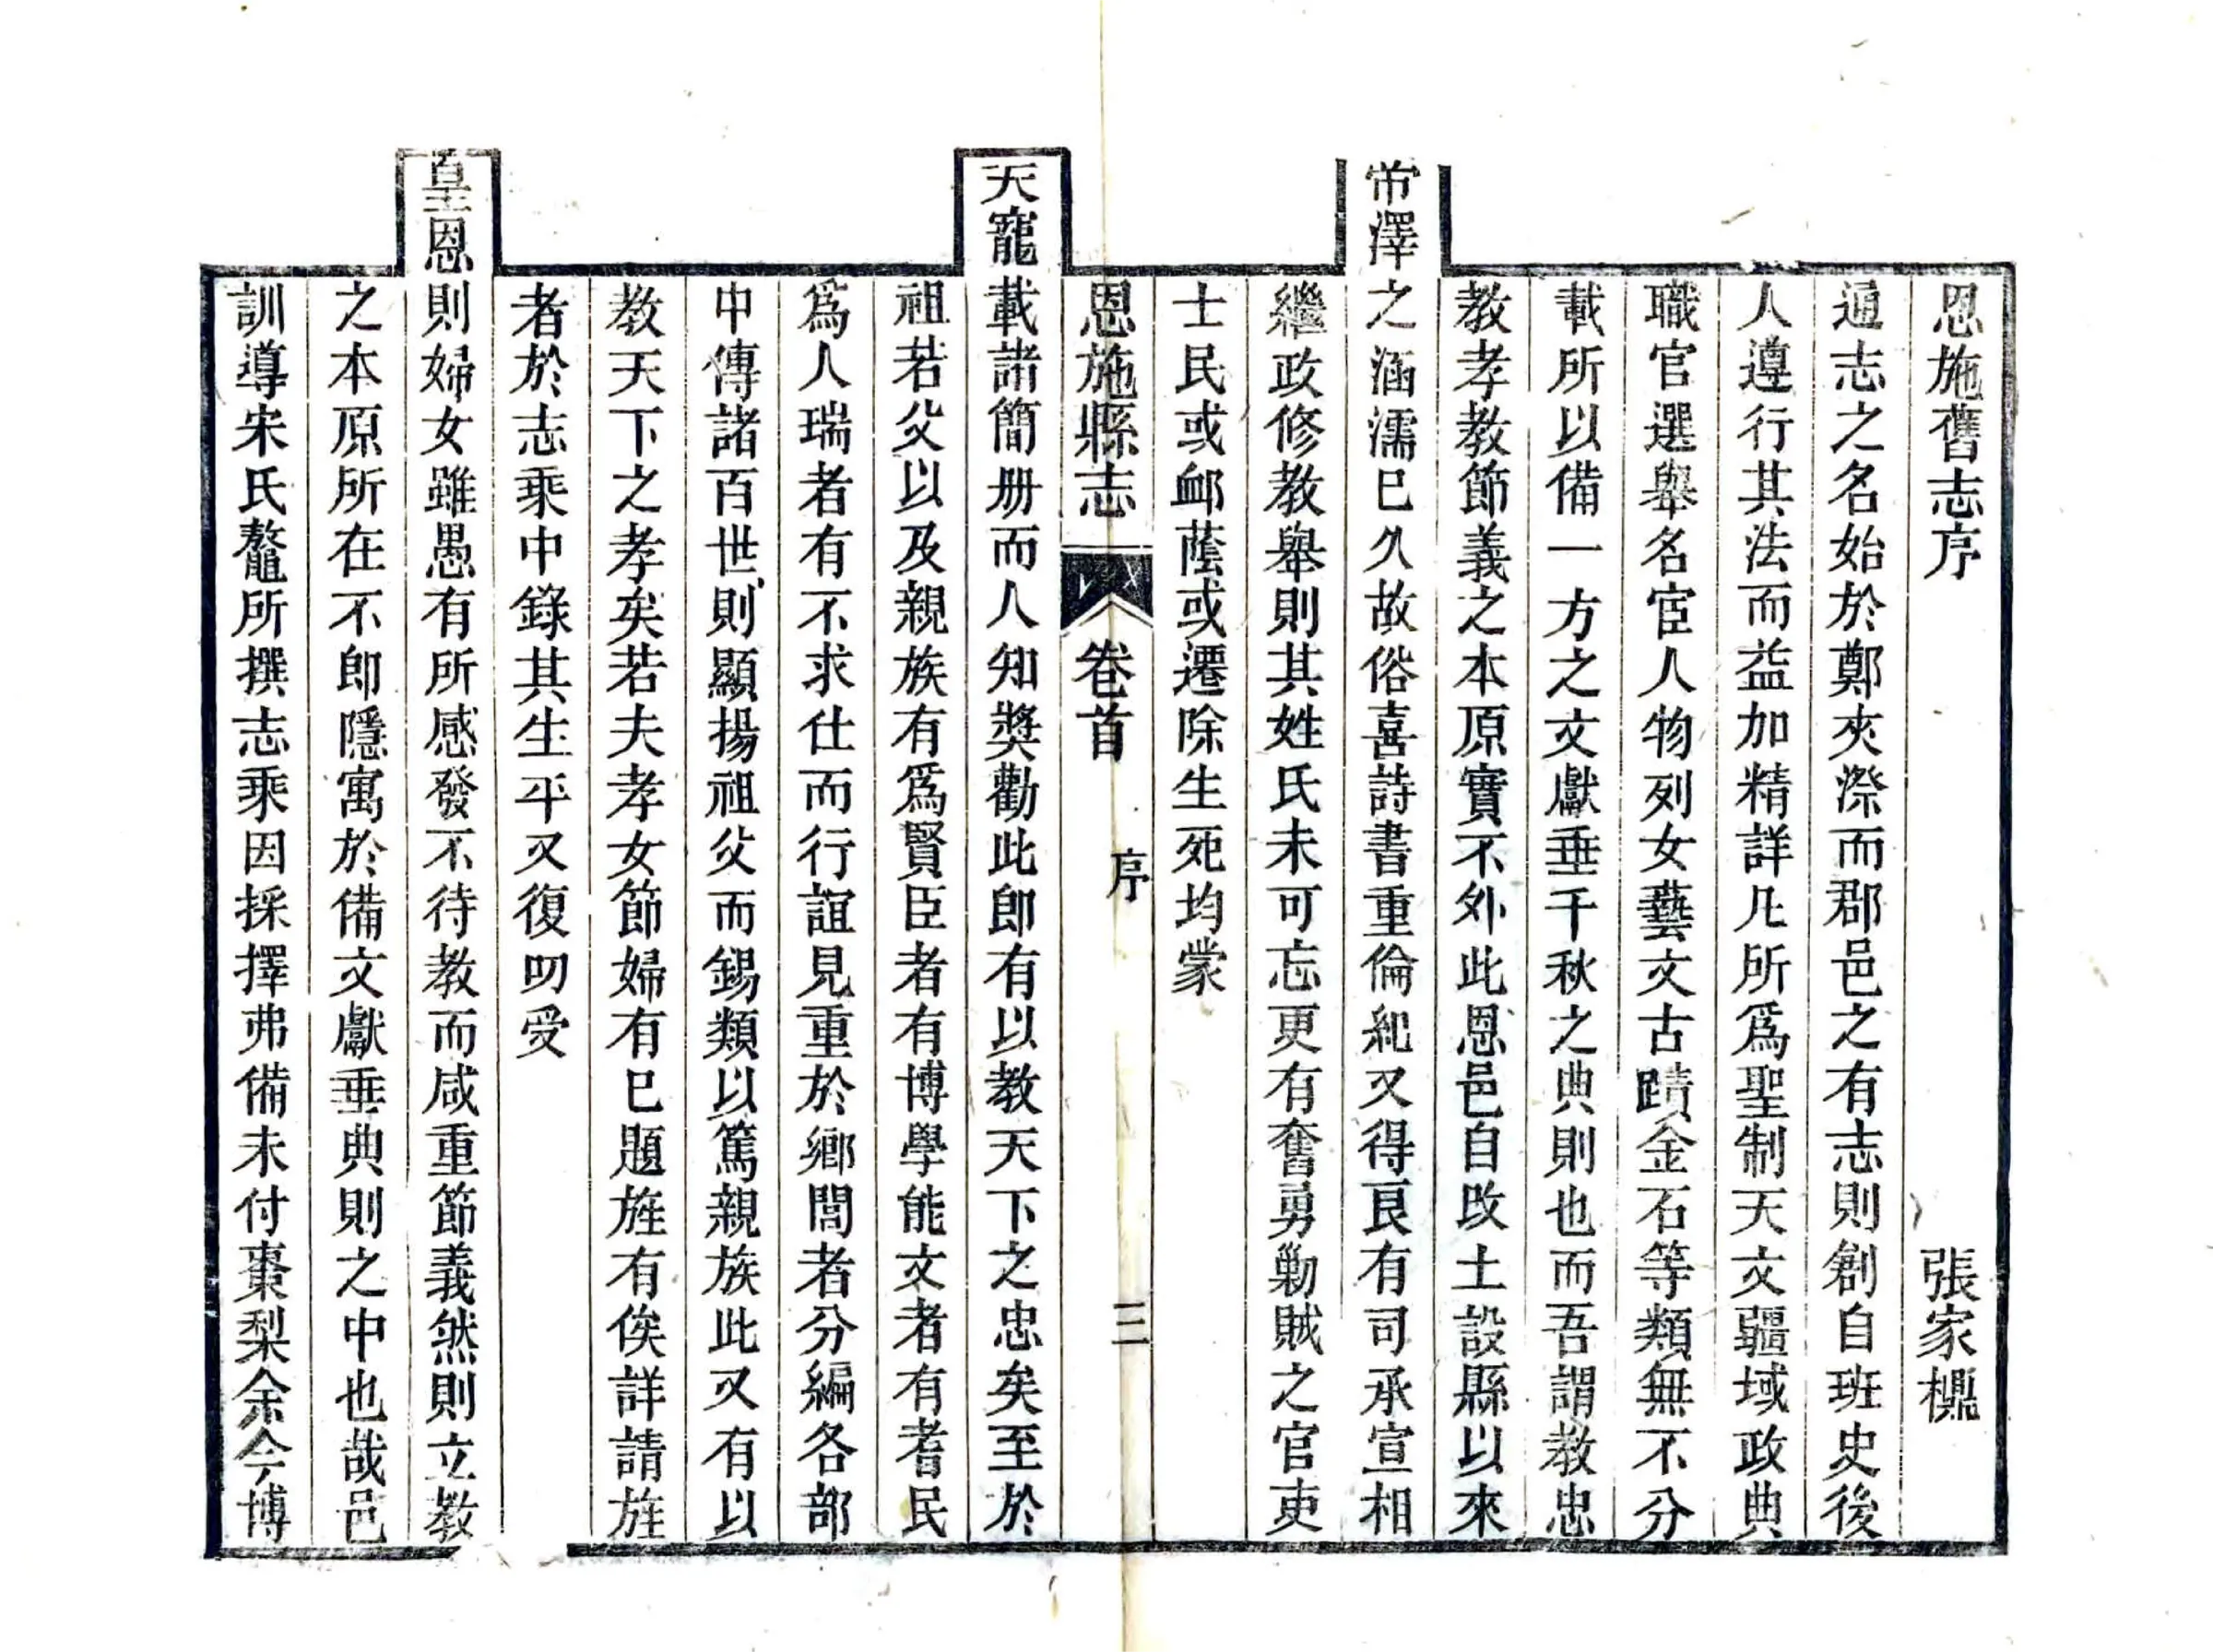 恩施舊志序 張家㯹
通志之名始於鄭夾漈而郡邑之有志則創自班史後
人遵行其法而益加精詳凡所爲聖制天文疆域政典
職官選舉名宦人物列女藝文古蹟金石等類無不分
載所以備一方之文獻垂千秋之典則也而吾謂教忠
教孝教節義之本原實不外此恩邑自改土設縣以來
帝澤之涵濡已久故俗喜詩書重倫紀又得良有司承宣相
繼政修教舉則其姓氏未可忘更有奮勇勦賊之官吏
士民或䘏蔭或遷除生死均蒙
恩施縣志 卷首 序 三
天寵載諸簡册而人知獎勸此卽有以教天下之忠矣至於
祖若父以及親族有爲賢臣者有博學能文者有耆民
爲人瑞者有不求仕而行誼見重於鄉閭者分編各部
中傳諸百世則顯揚祖父而錫類以篤親族此又有以
教天下之孝矣若夫孝女節婦有已題旌有俟詳請旌
者於志乘中錄其生平又復叨受
皇恩則婦女雖愚有所感發不待教而咸重節義然則立教
之本原所在不卽隱寓於備文獻垂典則之中也哉邑
訓導宋氏鼇所撰志乘因採擇弗備未付棗梨余今博